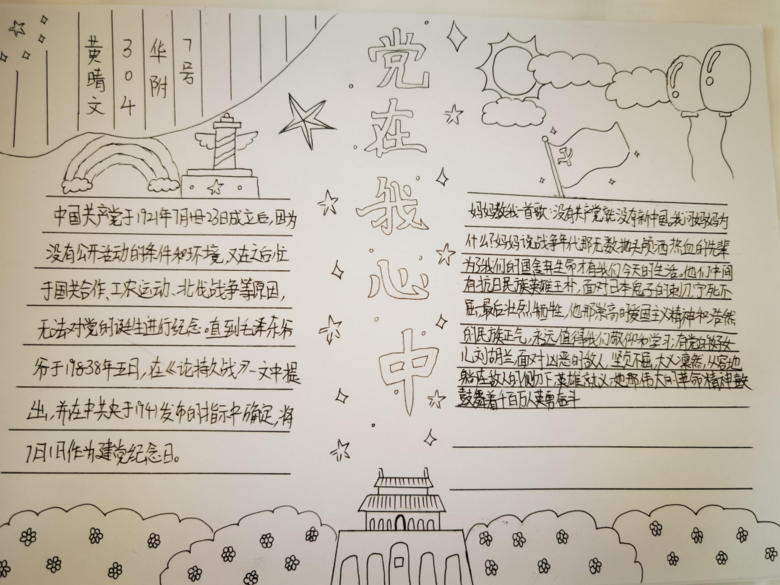 7号
华附
304
黄晴文
党在我心中
中国共产党于1921年7月23日成立后,因为
没有公开活动的条件和环境,又在之后忙
于国共合作、工农运动、北伐战争等原因,
无法对党的诞生进行纪念。直到毛泽东爷
爷于1938年五月,在《论持久战》一文中提
出,并在中共央于1941发布的指示中确定,将
7月1日作为建党纪念日。
妈妈教我一首歌:没有共产党就没有新中国。我问妈妈为
什么?妈妈说战争年代那无数抛头颅洒热血的先辈
为了我们的国舍弃生命才有我们今天的生活。他们中间
有抗日民族英雄王朴,面对日本鬼子的刺刀宁死不
屈,最后壮烈牺牲,他那崇高的爱国主义精神和浩然
的民族正气,永远值得我们敬仰和学习;有党的好女
儿刘胡兰,面对凶恶的敌人,坚贞不屈,大义凛然,从容地
躺在敌人的侧刀下英雄就义,她那伟大的革命精神鼓
鼓舞着千百万人英勇奋斗